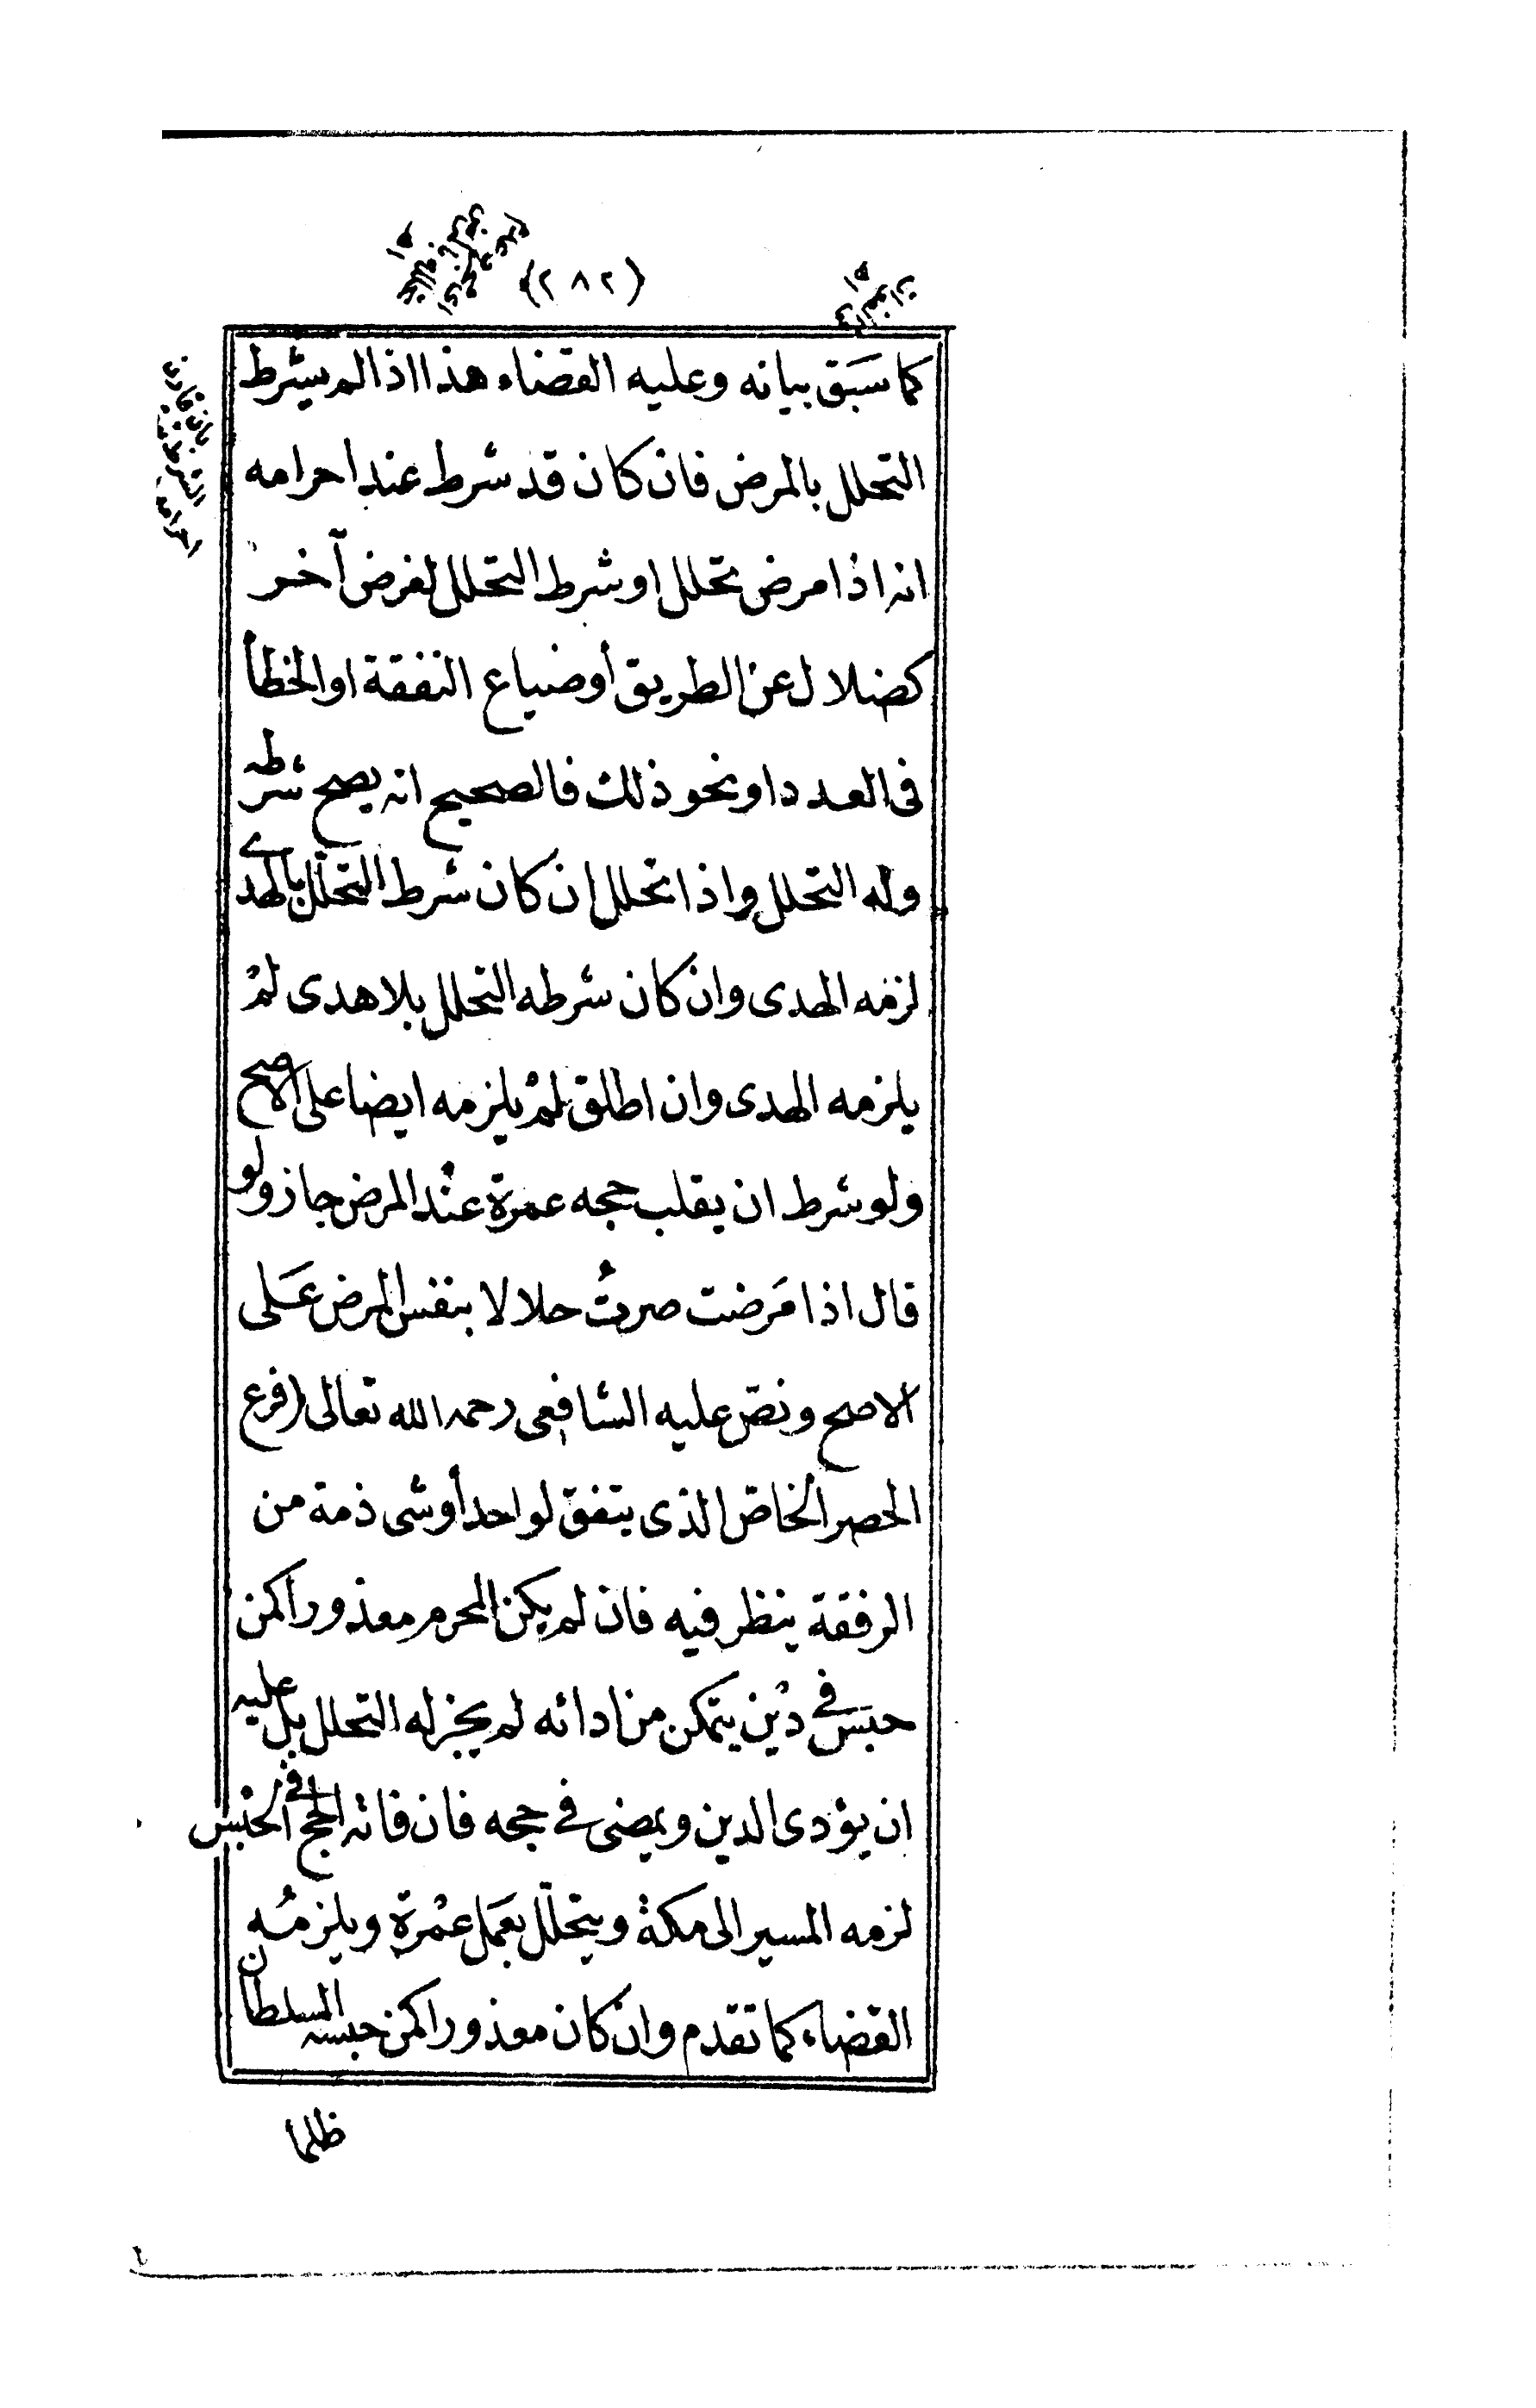 (٢٨٢)
كما سَبَق بيانه وعليه القضاء هذا اذا لم يشرط
التحلل بالمرض فان كان قد شرط عند احرامه
انه اذا مرض تحلل او شرط التحلل لغرض آخر
كضلال عن الطريق أو ضياع النفقة او الخطأ
فى العدد او نحو ذلك فالصحيح انه يصح شرطه
وله التحلل واذا تحلل ان كان شرط التحلّل بالهدى
لزمه الهدى وان كان شرطه التحلل بلا هدى لمْ
يلزمه الهدى وان اطلق لمْ يلزمه ايضا على الاصح
ولو شرط ان يقلب حجه عمرة عنْد المرض جاز ولو
قال اذا مَرضت صرتُ حلالا بنفس المرض عَلى
الاصح ونصّ عليه الشافعى رحمه الله تعالى (فرع
الحصر الخاصّ الذى يتفق لواحد أو شى ذمة من
الرفقة ينظر فيه فان لم يكن المحرم معذورا كمن
حبَس فى ديْن يتمكن من ادائه لم يجز له التحلل بل عليه
ان يؤدى الدين ويمضى فى حجه فان فاته الحج فى الحبْس
لزمه المسير الى مكة ويتحلّل بعَمل عمْرة ويلزمُه
القضاء كما تقدم وان كان معذورا كمن حبسه السلطان
ظلما